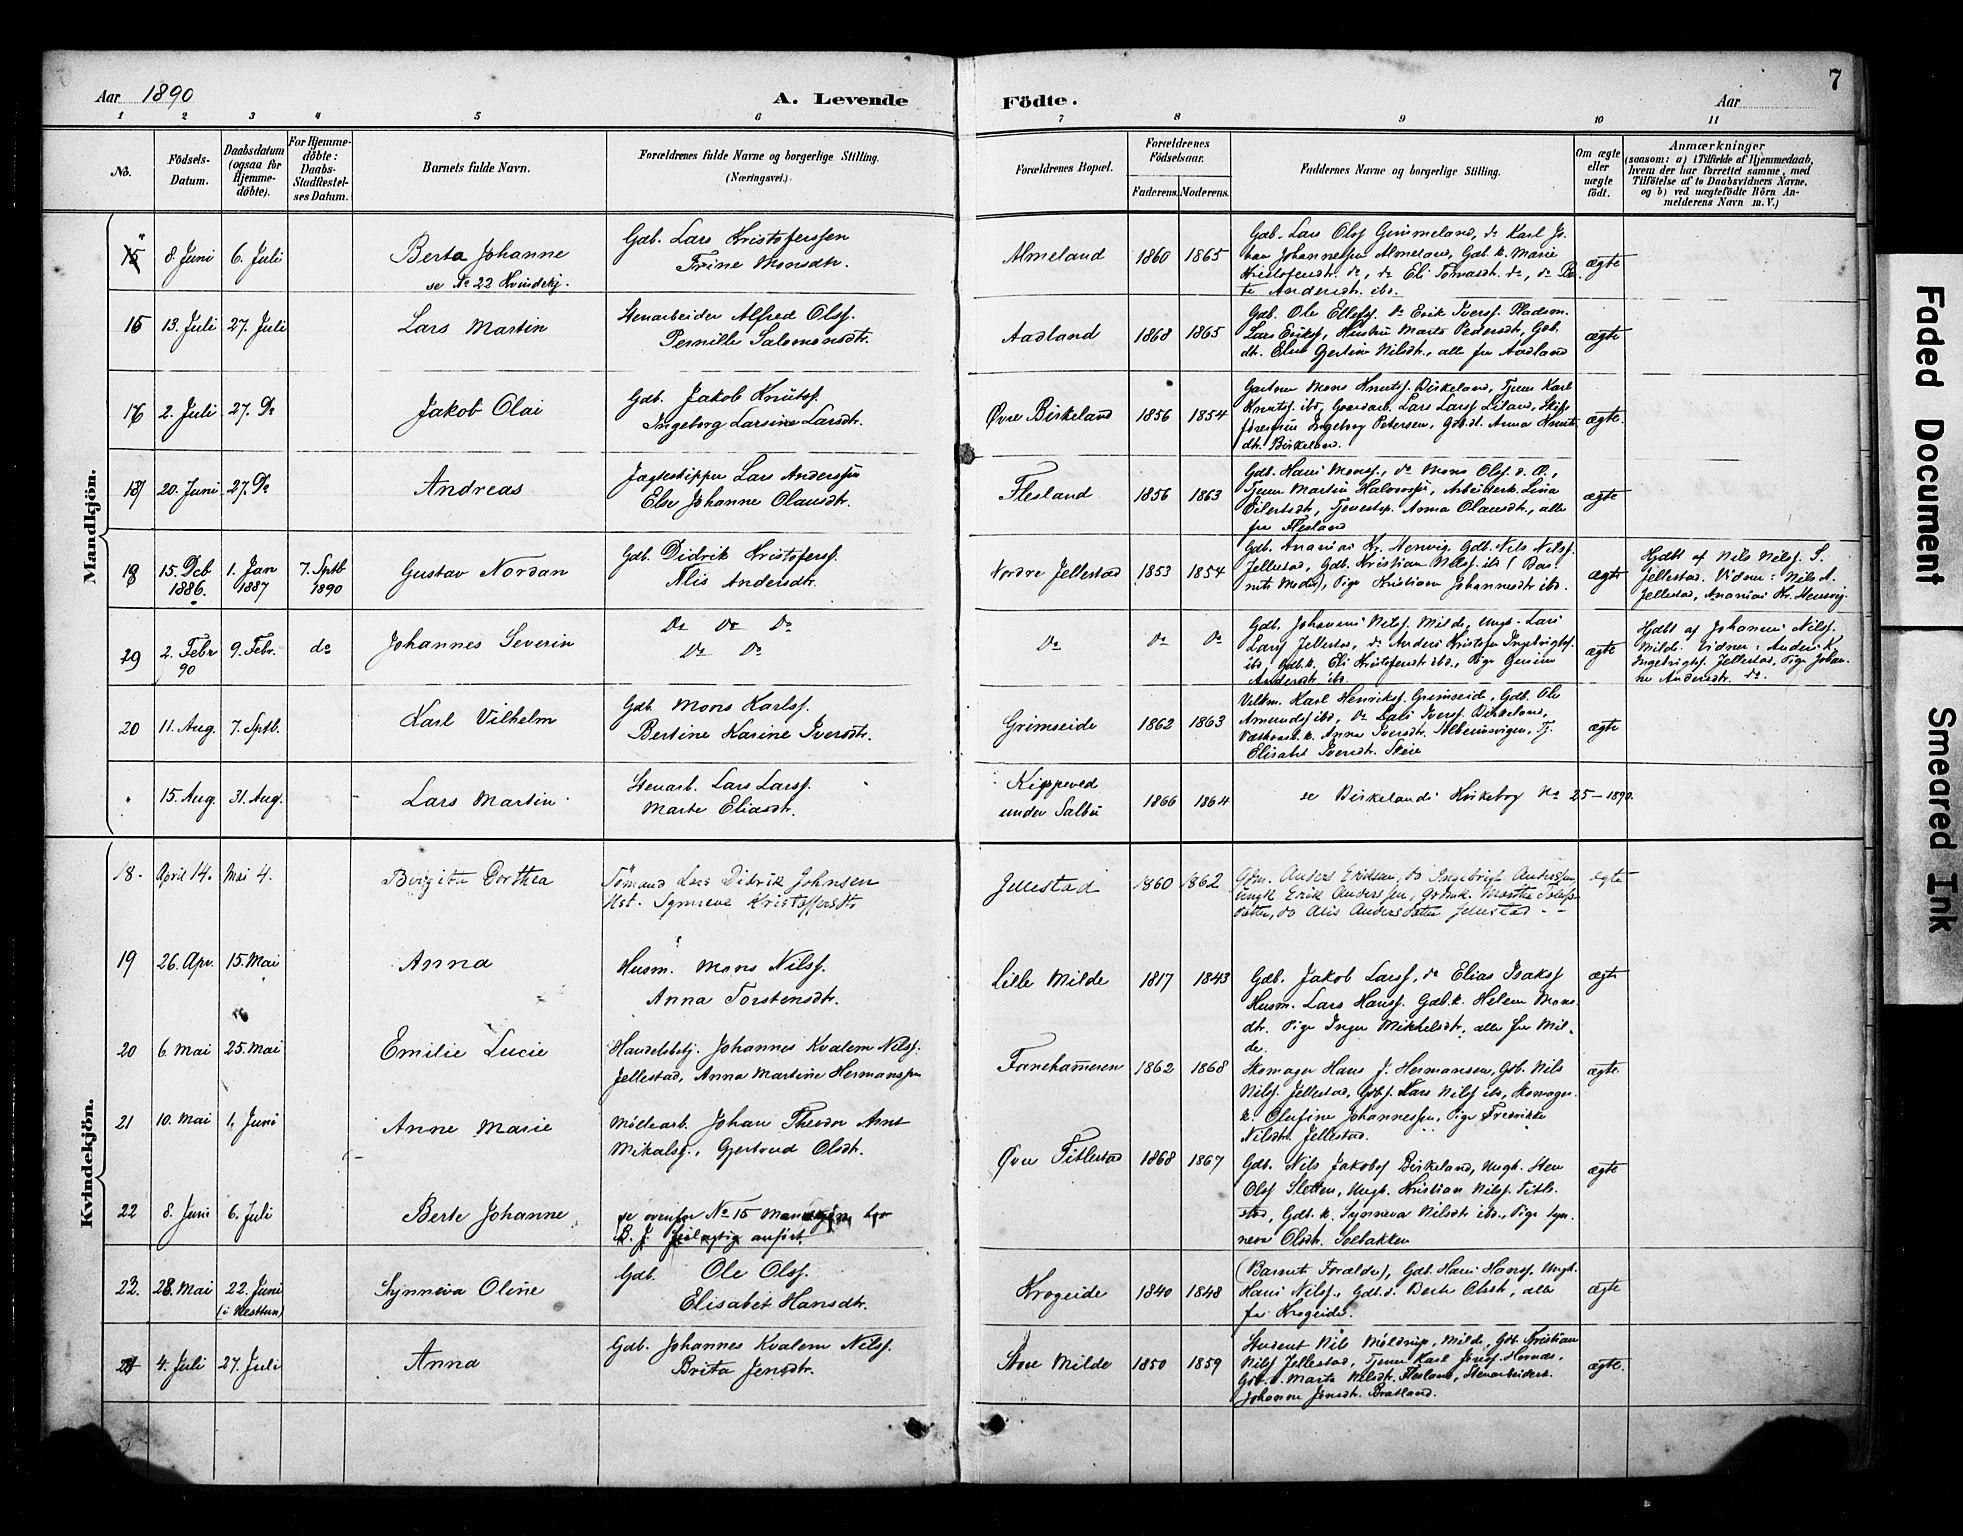 Aar 1890
A. Levende
Födte.
Aar
7
1 2 3 4 5 6 7 8 9 10 11
No.
Födsels-
Datum.
Daabsdatum
(ogsaa for
Hjemme-
döbte).
For Hjemme-
döbte:
Daabs-
Stadfæstel-
ses Datum.
Barnets fulde Navn.
Forældrenes fulde Navne og borgerlige Stilling.
(Næringsvei.)
Forældrenes Bopæl.
Forældrenes
Födselsaar.
Faderens.
Moderens.
Faddernes Navne og borgerlige Stilling.
Om ægte
eller
uægte
födt.
Anmærkninger
(saasom: a) i Tilfælde af Hjemmedaab,
hvem der har forrettet samme, med
Tilföielse af to Daabsvidners Navne,
og b) ved uægtefödte Börn An-
melderens Navn m. V.)
Mandkjön.
15 8 Juni 6. Juli
Berta Johanne
se No 22 Kvindekj.
Gdb. Lars Kristofersen
Trine Monsdtr.
Almeland 1860 1865
Gdb. Lars Olsf Grimmeland, do Karl Jo-
han Johannessen Almeland, Gdb. k. Marie
Kristofersdtr. do, do Eli Tomasdt. do, do Be-
te Andersdt. ibd.
ægte
15 13. Juli 27. Juli
Lars Martin
Stenarbeider Alfred Olsf.
Pernille Salomonsdtr.
Aadland 1868 1865
Gdb. Ole Ellefsf. do Erik Iversf. Pladsm.
Lars Eriksf, Hustru Marta Pedersdt, Gdb.
dt. Else Gertine Nilsdt., alle fra Aadland
ægte
16 2. Juli 27. Do
Jakob Olai
Gdb. Jakob Knutsf.
Ingeborg Larsine Larsdtr.
Øvre Birkeland 1856 1854
Gartner Mons Knutsf. Birkeland, Tjener Karl
Knutsf. ibd, Gaardarb. Lars Larsf Liland, Skibs
förerfru Ingeborg Petersen, Gdb.dt. Anna Knuts
dt. Birkeland.
ægte.
17 20. Juni 27. Do
Andreas
Jagteskipper Lars Anderssen
Else Johanne Olausdtr.
Flesland 1856 1863
Gdb. Hans Monsf., do Mons Olsf. d. Æ.,
Tjener Martin Halvorsen, Arbeiderk. Lina
Eilertsdt, Tjenestep. Anna Olausdt., alle
fra Flesland
ægte
18 15. Dcb 1886. 1. Jan 1887 7. Sptb 1890
Gustav Nordan
Gdb. Didrik Kristofersf.
Alis Andersdtr.
Nordre Jellestad 1853 1854
Gdb. Ananias Kr. Henvig. Gdb. Nils Nilsf.
Jellestad, Gdb. Kristian Nilsf. ibd (Bar-
nets Moder), Pige Kristiane Johannesdtr ibd.
ægte
Hjdbt af Nils Nilsf. S.
Jellestad. Vidner: Nils A.
Jellestad, Ananias Kr. Henvig.
19 2. Febr 90 9. Febr. do
Johannes Severin
Do Do Do
Do Do
Do Do Do
Gdb. Johannes Nilsf. Milde, Ungk. Lars
Larsf Jellestad, do Anders Kristofer Ingebrigtsf.
ibd, Gdb.k. Eli Kristofersdt ibd., Pige Gurine
Andersdt. ibd.
ægte
Hjdbt af Johannes Nilsf.
Milde. Vidner: Anders K.
Ingebrigtsf. Jellestad, Pige Johan-
ne Andersdtr. do.
20 11. Aug. 7. Sptb.
Karl Vilhelm
Gdb. Mons Karlsf.
Bertine Karine Iversdtr.
Grimseide 1862 1863
Karl Henriksf. Grimseide, Gdb. Ole
Amundsf ibd, do Lars Iversf. Birkeland,
Anna Iversdt. Tj.
Elisabet Iversdt. Skeie
ægte
15. Aug. 31. Aug.
Lars Martin
Stenarb. Lars Larsf.
Marte Eliasdt.
under Salbu 1866 1864
se Birkelands Kirkebog No 25 – 1890.
Kvindekjön.
18. April 14. Mai 4.
Birgitte Dorthea
Sömand Lars Didrik Johnsen
Hst. Synneve Kristoffersdtr
Jellestad 1860 1862
Gbm. Anders Eriksen, do Ingebrigt Anderssen,
Ungk Erik Anderssen, Gbmk. Martha Tolefs-
datter, do Alis Andersdatter Jellestad - -
ægte
19 26. Apr. 15. Mai
Anna
Husm. Mons Nilsf.
Anna Torstensdtr.
Lille Milde 1817 1843
Gdb. Jakob Larsf, do Elias Isaksf
Husm. Lars Hansf. Gdb.k. Helene Mons-
dtr. Pige Inger Mikkelsdtr, alle fra Mil-
de.
ægte
20 6. Mai 25. Mai
Emilie Lucie
Handelsbetj. Johannes Kvalem Nilsf.
Jellestad, Anna Martine Hermanssen
Fanehammeren 1862 1868
Skomager Hans J. Hermansen, Gdb. Nils
Nilsf. Jellestad, Gdbf. Lars Nilsf ibd, Skomager-
k. Olufine Johannessen, Pige Fredrikke
Nilsdtr. Jellestad.
ægte.
21 10. Mai 1. Juni
Anne Marie
Möllearb. Johan Theodor Arnt
Mikalsf., Gjertrud Olsdtr.
Øvre Titlestad 1868 1867
Gdb. Nils Jakobsf Birkeland, Ungk. Sten
Olsf Sletten, Ungk. Kristian Nilsf. Title-
stad, Gdbk. Synneva Nilsdt ibd., Pige Syn-
neva Olsdt. Solbakken
ægte
22 8. Juni 6. Juli
Berte Johanne
se ovenfor No 15 Mandkjön, hvor
B. J. feilagtig anfört.
23. 28. Mai 22. Juni
(i Nesttun)
Synneva Oline
Gdb. Ole Olsf.
Elisabet Hansdtr.
Krogeide 1840 1848
(Barnets Forældre), Gdb. Hans Hansf. Ungk.
Hans Nilsf., Gdb.d. Berte Olsdt., alle
fra Krogeide.
ægte
24 4. Juli 27. Juli
Anna
Gdb. Johannes Kvalem Nilsf.
Brita Jensdtr.
Store Milde 1850 1859
Student Nils Möldrup, Milde, Gdb. Kristian
Nilsf Jellestad, Tjener Karl Jonsf. Hornæs,
Gdb.d. Marta Nilsdt. Flesland, Stenarbeiderk.
Johanne Jensdt. Bratland.
ægte.
Faded Document
Smeared Ink